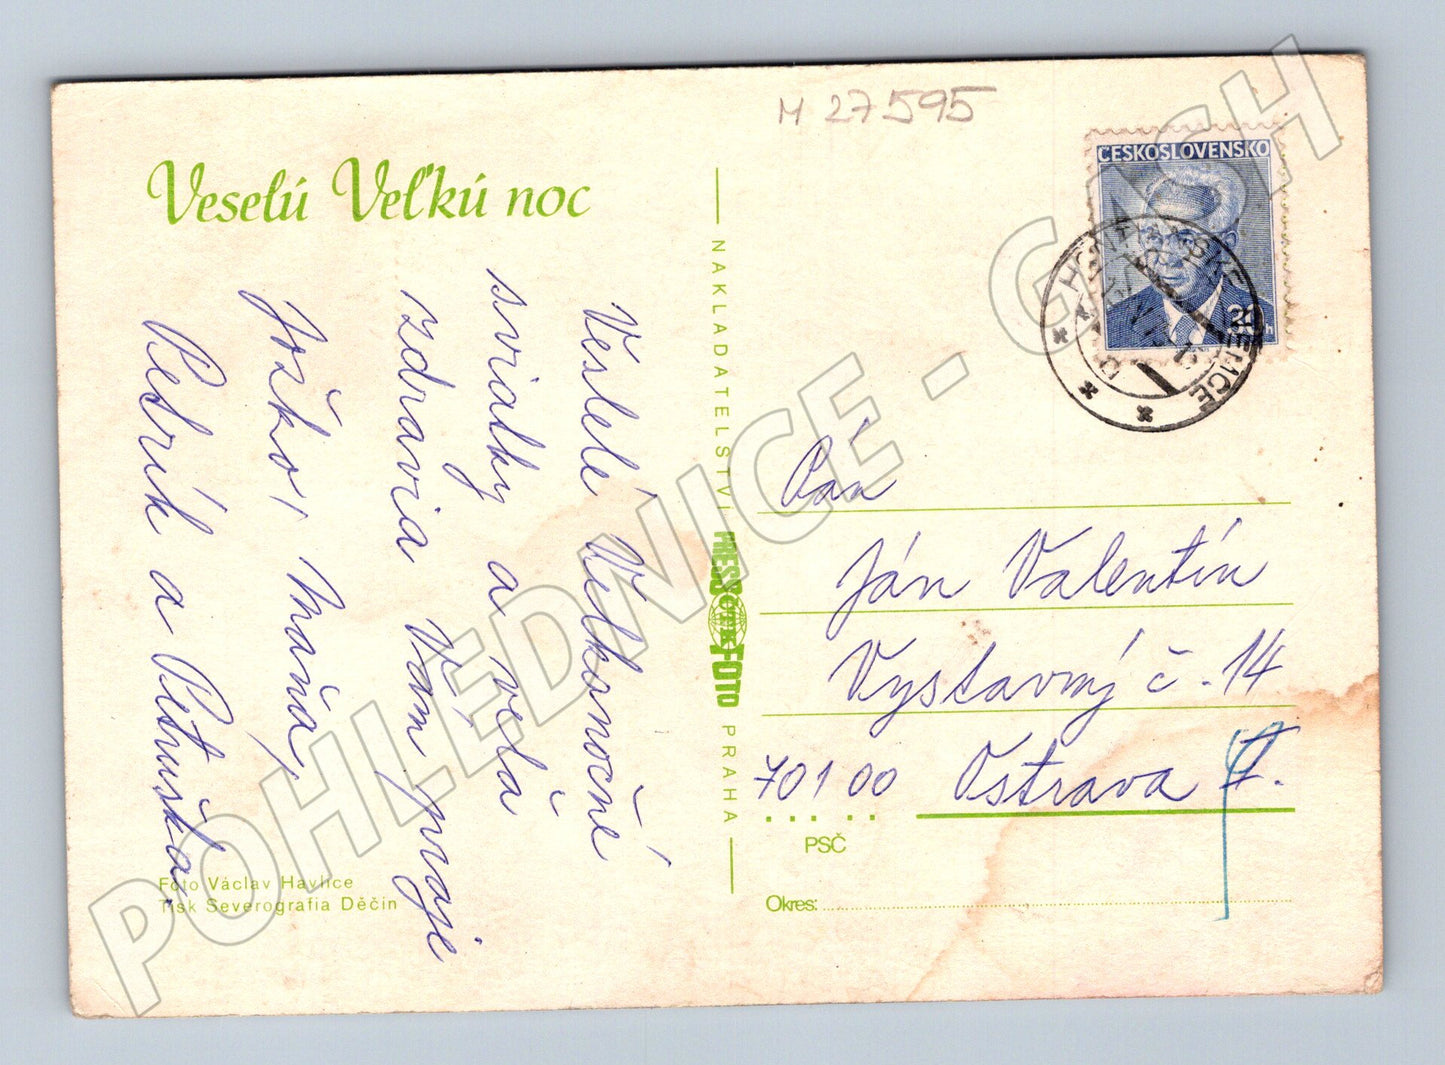 M 27595
Veselú Veľkú noc
Veselé Veľkonočné
sviatky a veľa
zdravia Vám praje
Jožko, Maňa,
Pedrík a Petruška.
Foto Václav Havlice
Tisk Severografia Děčín
NAKLADATELSTVÍ PRESSFOTO PRAHA
ČTK
ČESKOSLOVENSKO
30 h
Pán
Ján Valentín
Výstavný č. 14
701 00 Ostrava I.
PSČ
Okres:
POHLEDNICE - GASH